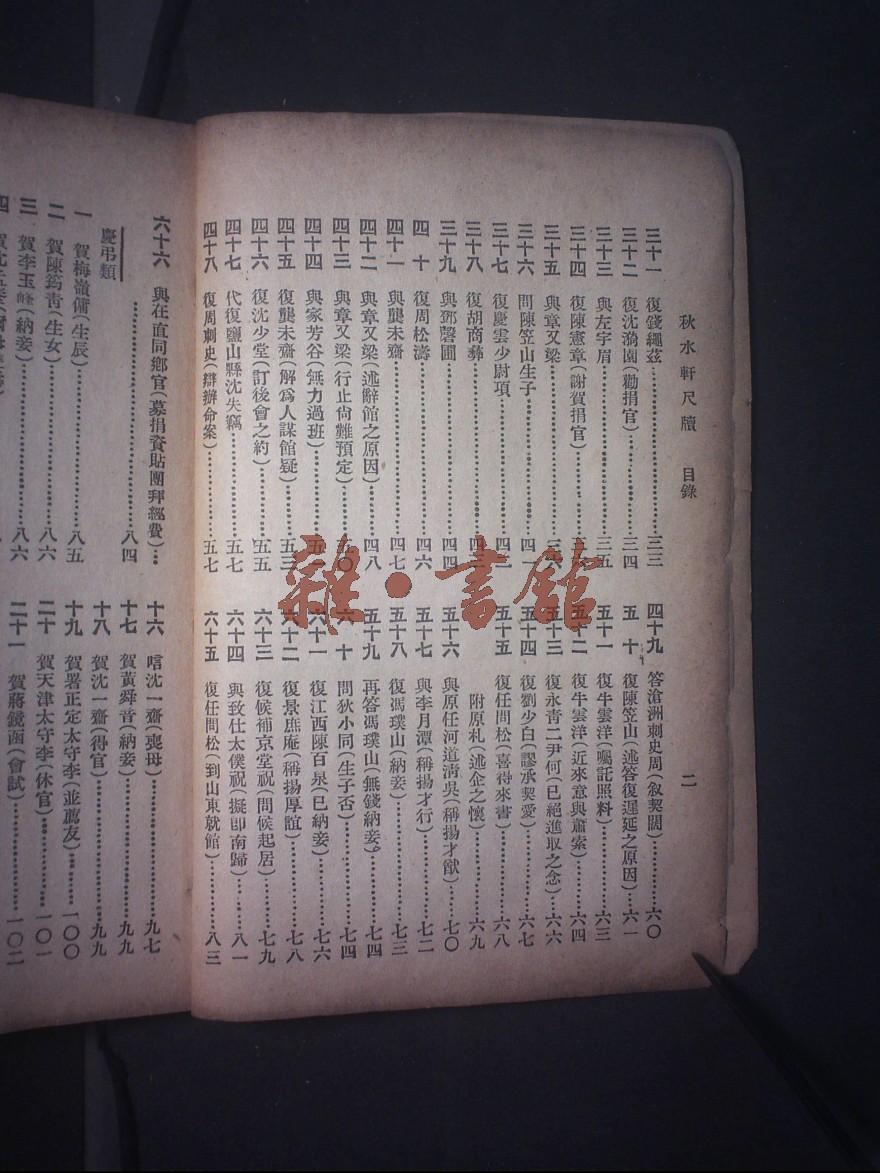 秋水軒尺牘 目錄 二
三十一 復錢繩茲 三三
三十二 復沈漪園(勸捐官) 三四
三十三 與左宇眉 三五
三十四 復陳憲章(謝賀捐官)
三十五 與章又梁 三六
三十六 問陳笠山生子 四一
三十七 復慶雲少尉項 四二
三十八 復胡商彝 四三
三十九 與鄧磬圃 四四
四十 復周松濤 四六
四十一 與龔未齋 四七
四十二 與章又梁(述辭館之原因) 四八
四十三 與章又梁(行止尙難預定) 五〇
四十四 與家芳谷(無力過班) 五一
四十五 復龔未齋(解爲人謀館疑) 五三
四十六 復沈少堂(訂後會之約) 五五
四十七 代復鹽山縣沈失竊 五七
四十八 復周刺史(辯辦命案) 五七
四十九 答滄洲刺史周(叙契闊) 六〇
五十 復陳笠山(述答復遲延之原因) 六一
五十一 復牛雲洋(囑託照料) 六三
五十二 復牛雲洋(近來意興蕭索) 六四
五十三 復永青二尹何(已絕進取之念) 六六
五十四 復劉少白(謬承契愛) 六七
五十五 復任問松(喜得來書) 六八
附原札(述企之懷) 六九
五十六 與原任河道淸吳(稱揚才猷) 七〇
五十七 與李月潭(稱揚才行) 七二
五十八 復馮璞山(納妾) 七三
五十九 再答馮璞山(無錢納妾) 七四
六十 問狄小同(生子否) 七四
六十一 復江西陳百泉(已納妾) 七六
六十二 復景庶庵(稱揚厚誼) 七八
六十三 復候補京堂祝(問候起居) 七九
六十四 與致仕太僕祝(擬卽南歸) 八一
六十五 復任問松(到山東就館) 八三
六十六 與在直同鄉官(募捐資貼團拜經費)
八四
慶弔類
一 賀梅嶺傭(生辰) 八五
二 賀陳筠青(生女) 八六
三 賀李玉峰(納妾) 八六
四
十六 唁沈一齋(喪母) 九七
十七 賀黃舜音(納妾) 九九
十八 賀沈一齋(得官) 九九
十九 賀署正定太守李(並薦友) 一〇〇
二十 賀天津太守李(休官) 一〇一
二十一 賀蔣鏡函(會試) 一〇二
雜·書館